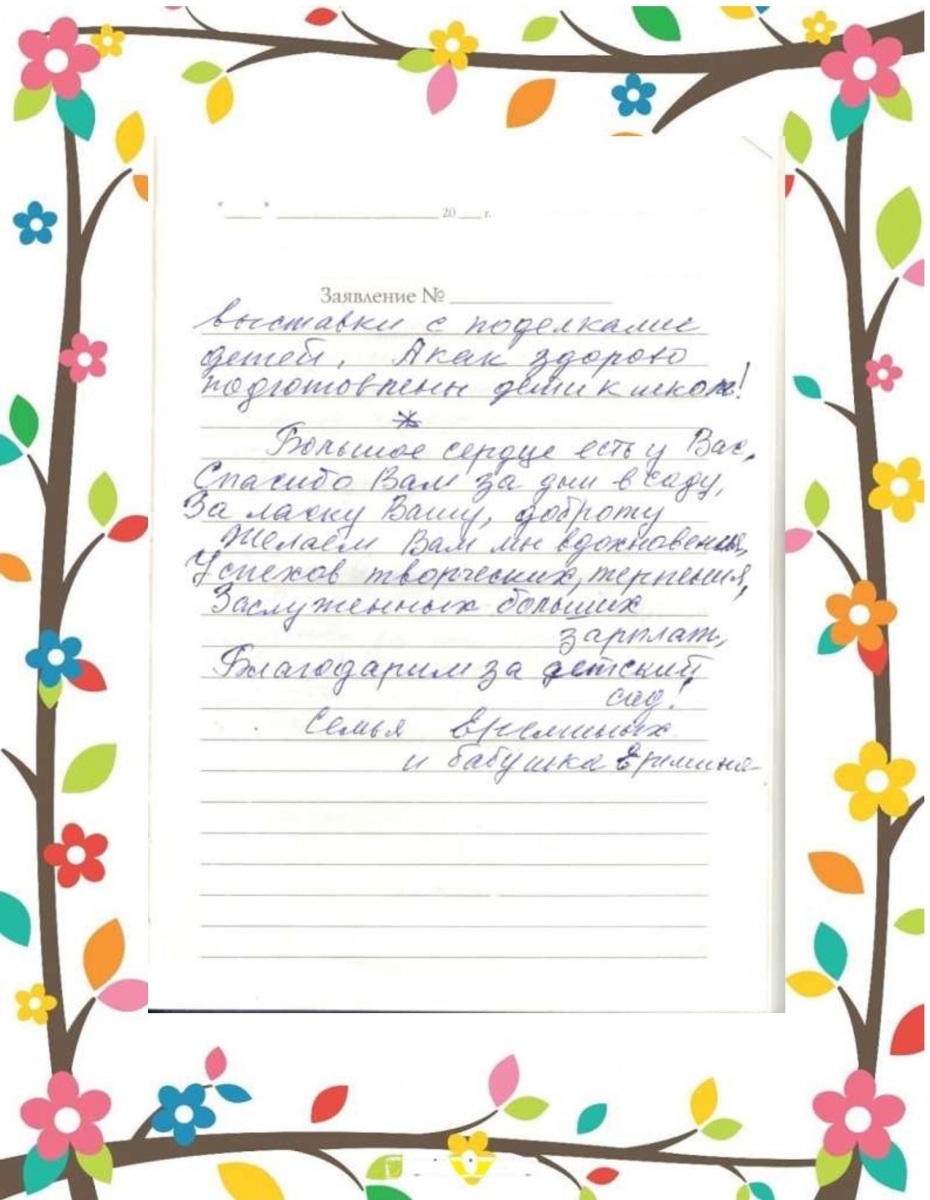 "___" ____________ 20 ___ г.
Заявление № ____________
выставки с поделками
детей. А как здорово
подготовлены дети к школе!
*
Большое сердце есть у Вас,
Спасибо Вам за дни в саду,
За ласку Вашу, доброту
Желаем Вам мы вдохновенья,
Успехов творческих, терпения,
Заслуженных больших
зарплат,
Благодарим за детский
сад!
Семья Ереминых
и бабушка Еремина